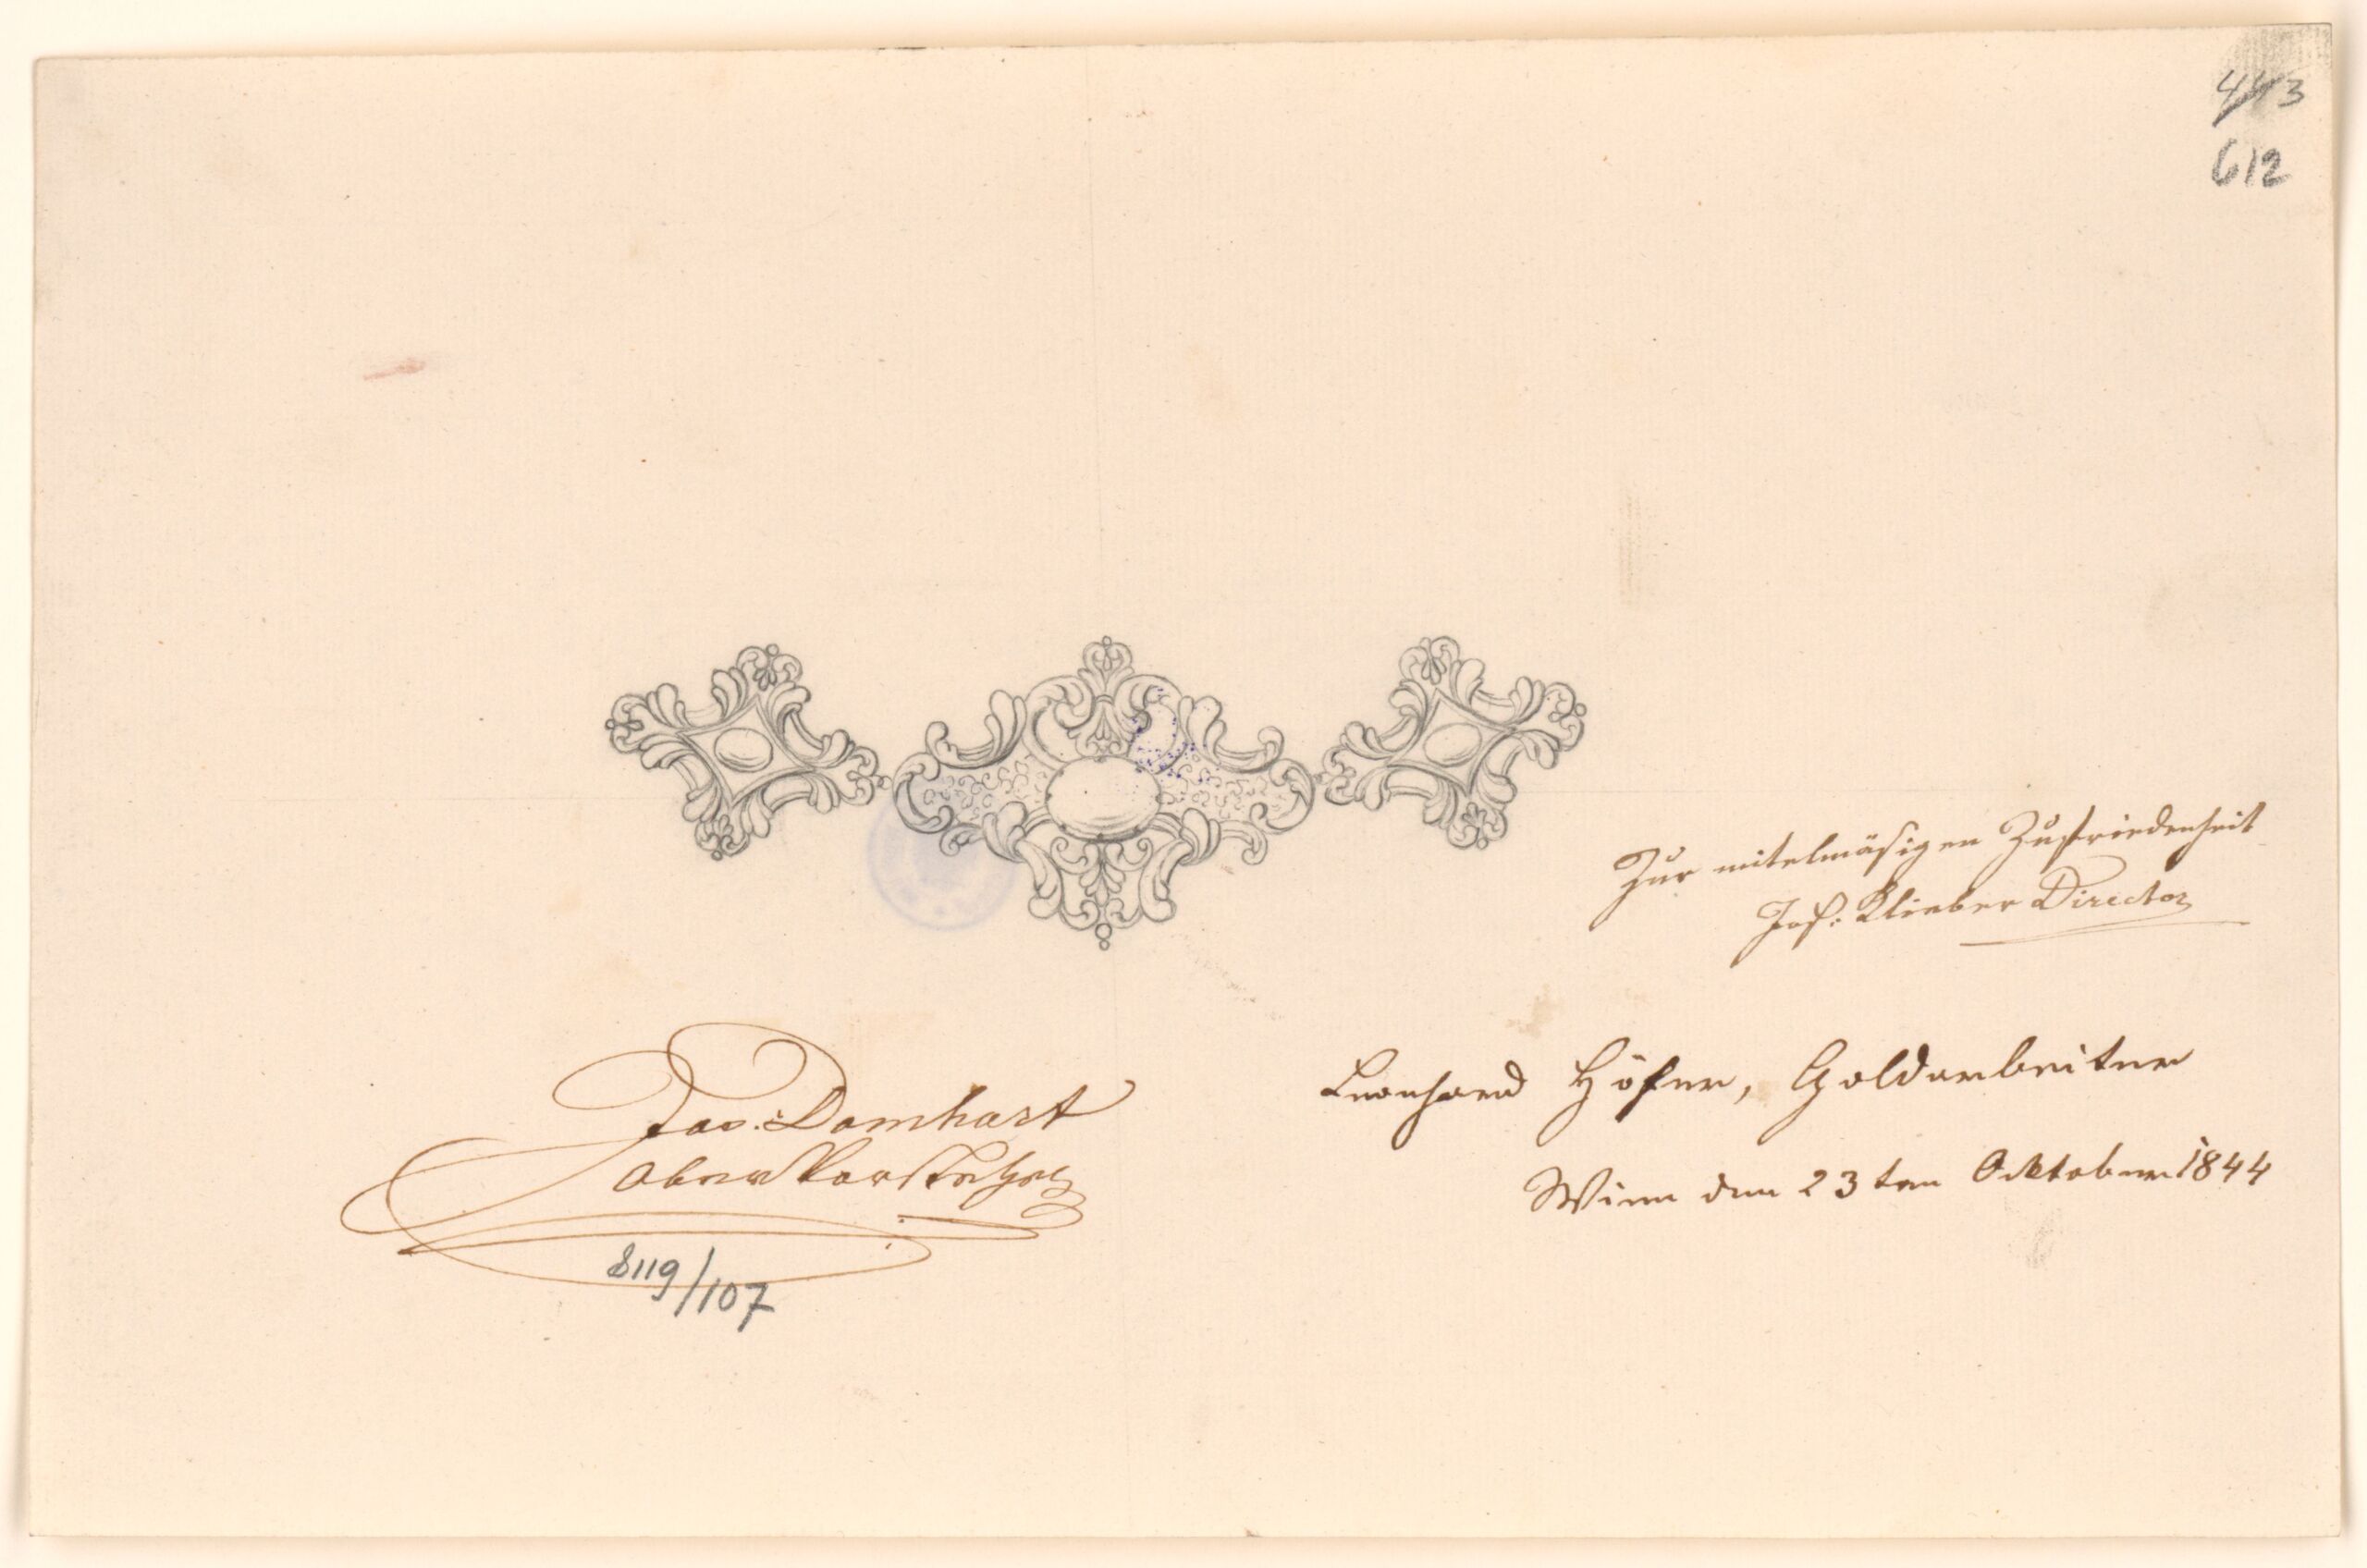 443
612
Zur mitelmäsigen Zufriedenheit
Jos: Klieber Director
Leonhard Höfer, Goldarbeiter
Wien den 23ten Oktober 1844
Jac. Domhart
Ober Vorsteher
8119/107